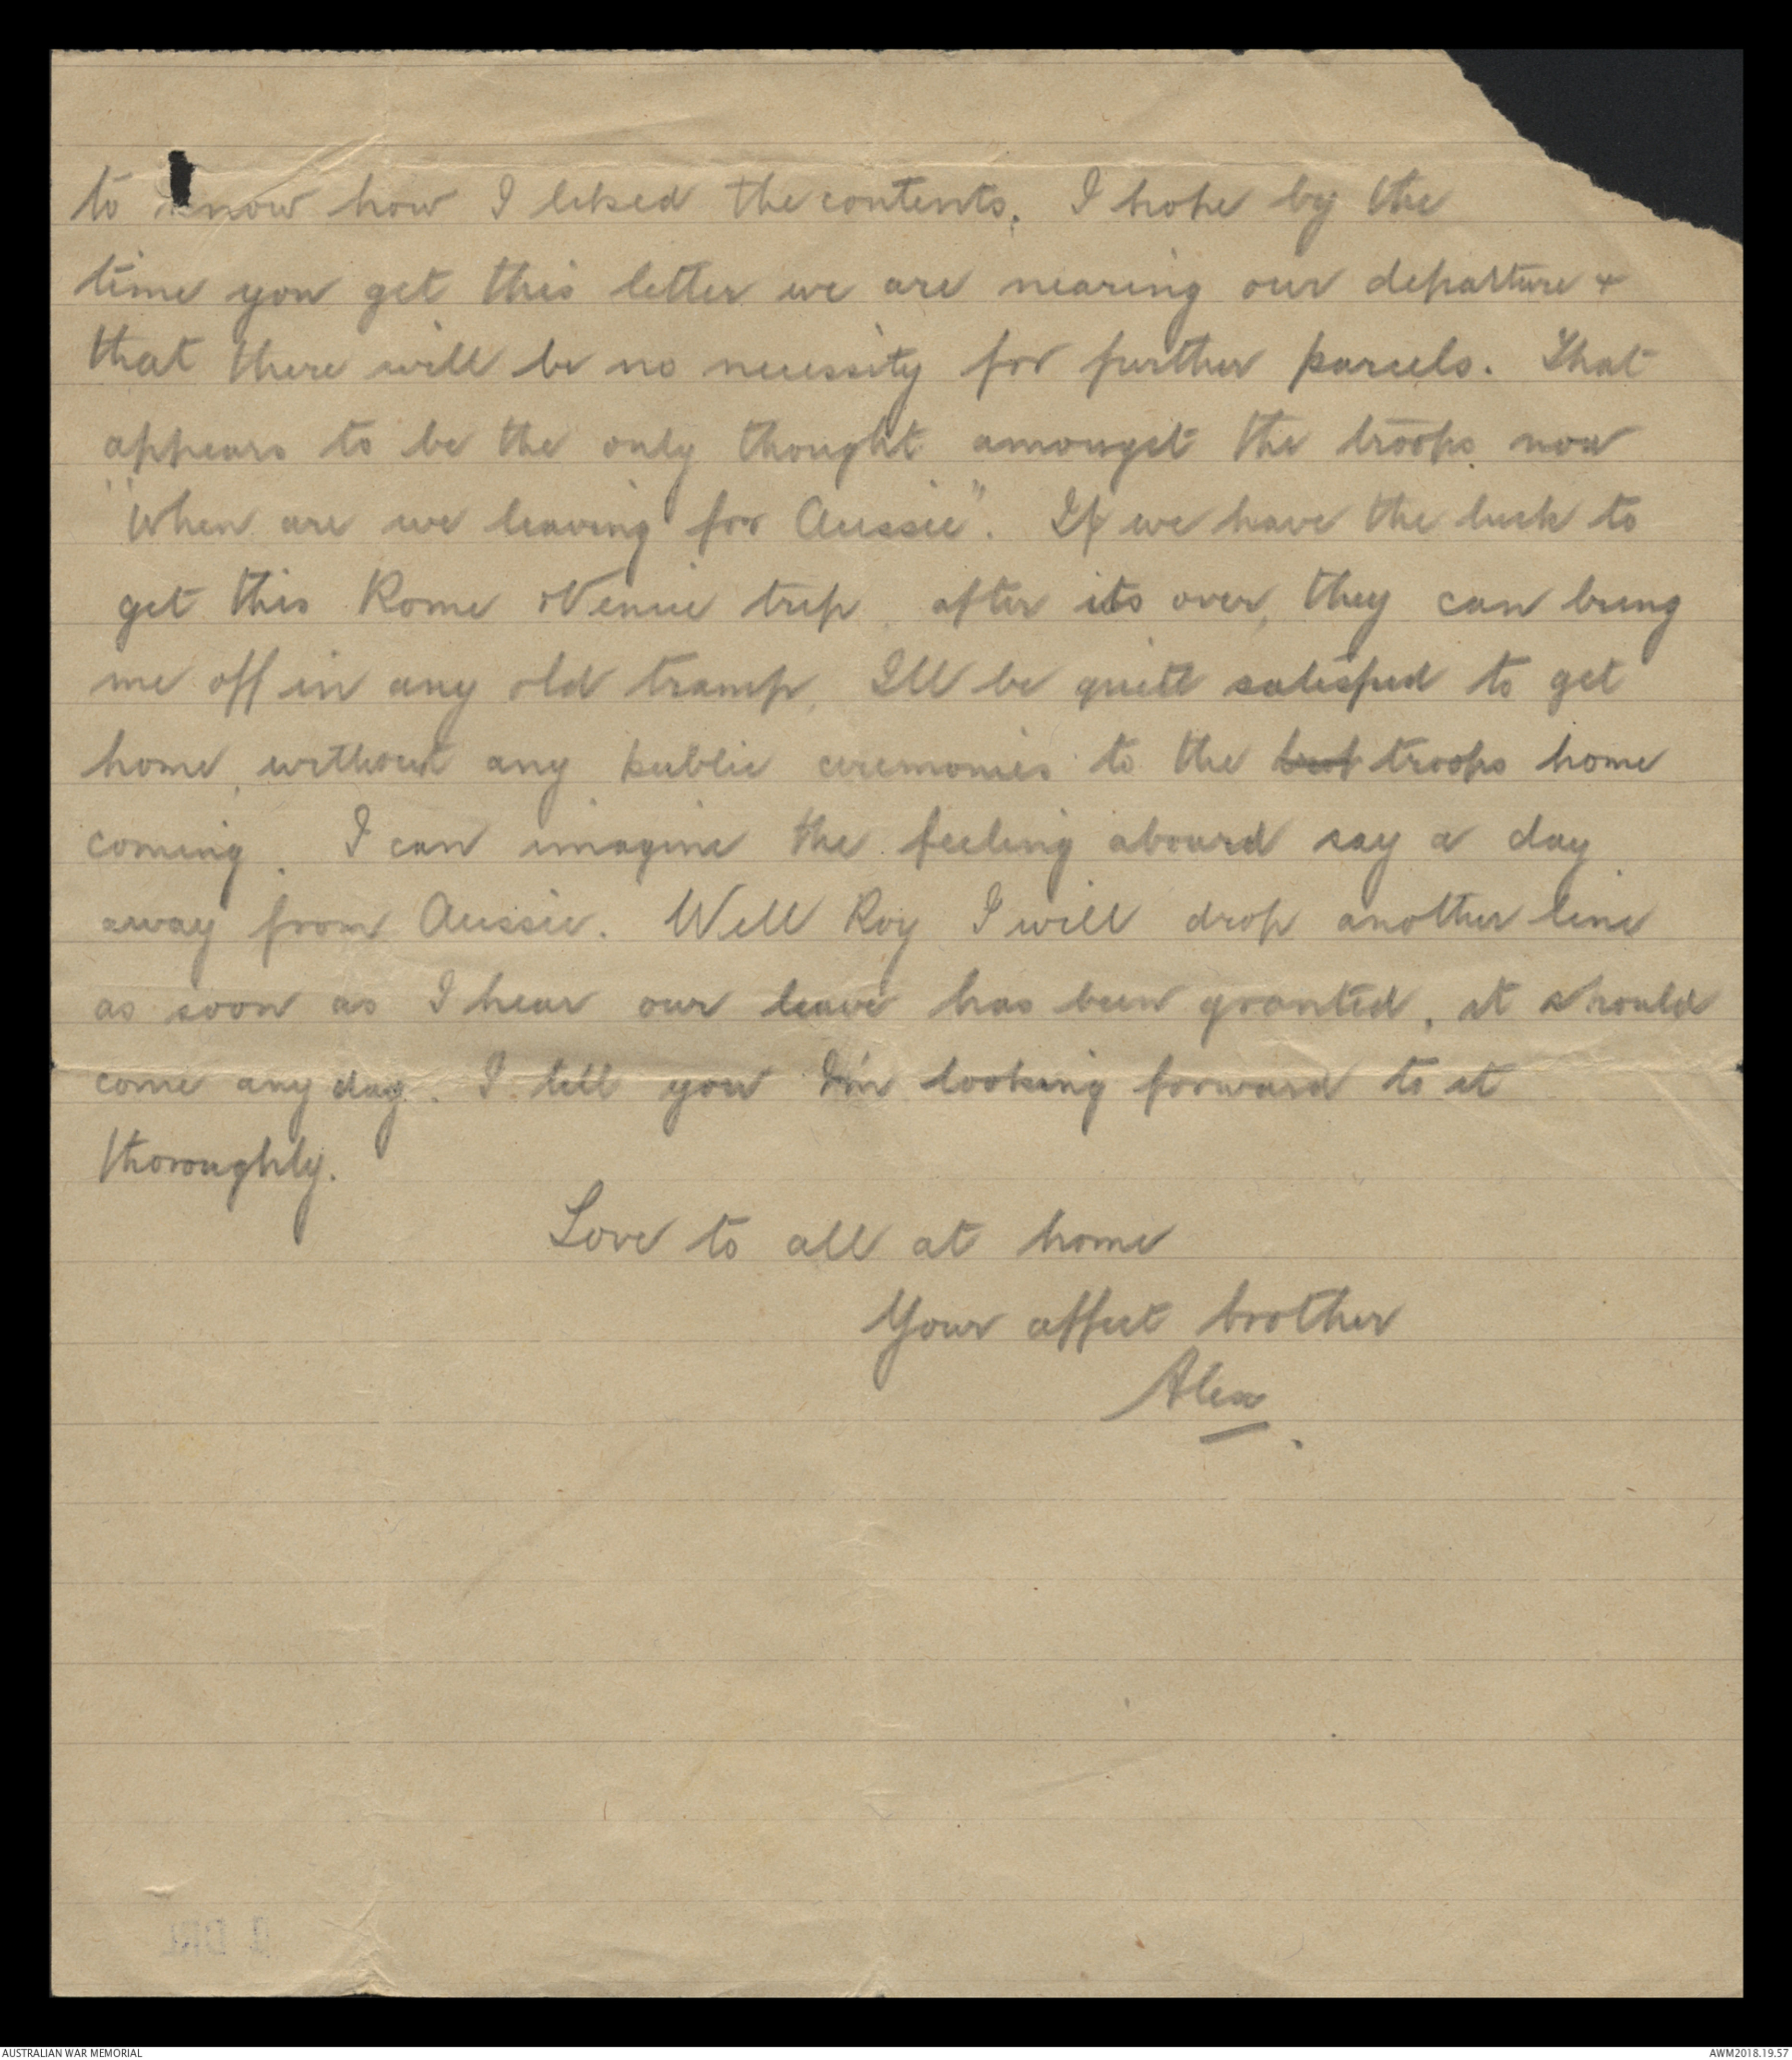 to know how I liked the contents. I hope by the
time you get this letter we are nearing our departure +
that there will be no necessity for further parcels. That
appears to be the only thought amongst the troops now
"When are we leaving for Aussie". If we have the luck to
get this Rome & Venice trip, after its over, they can bring
me off in any old tramp, I'll be quite satisfied to get
home, without any public ceremonies to the troops home
coming. I can imagine the feeling aboard say a day
away from Aussie. Well Roy I will drop another line
as soon as I hear our leave has been granted, it should
come any day. I tell you I'm looking forward to it
thoroughly.
Love to all at home
Your affect brother
Alex.
AUSTRALIAN WAR MEMORIAL
AWM2018.19.57